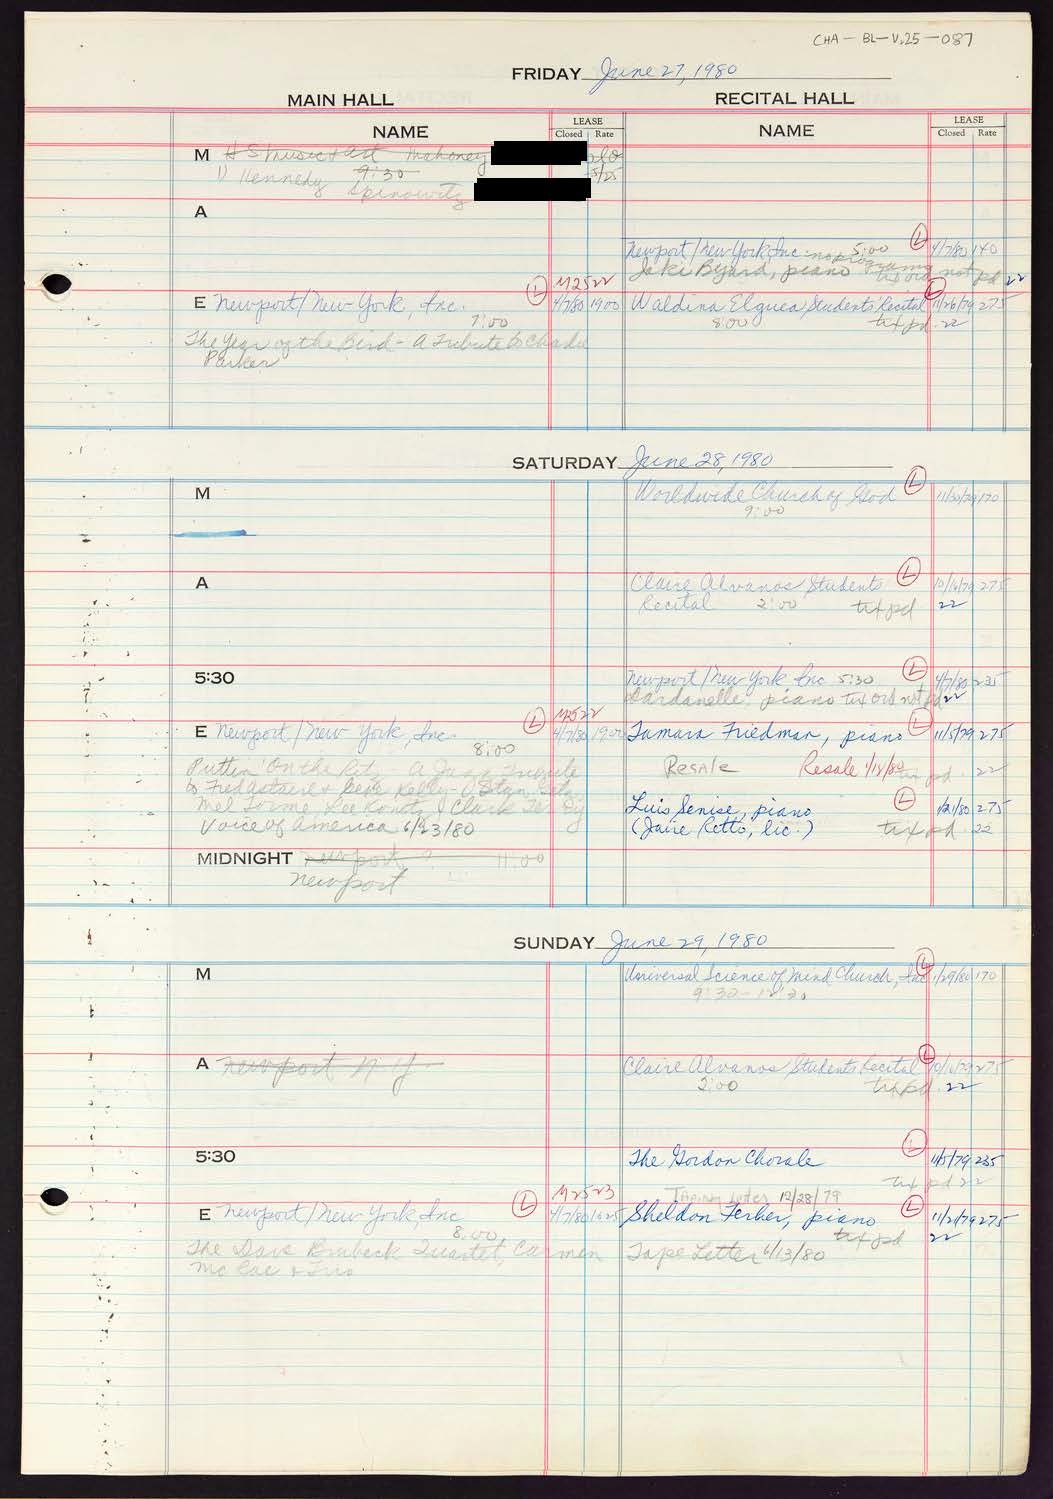 CHA - BL - V.25 - 087
FRIDAY June 27, 1980
MAIN HALL
RECITAL HALL
NAME
LEASE
Closed Rate
NAME
LEASE
Closed Rate
M H S Music & Art Mahoney
9:30
" Kennedy
5/25
A
Newport/New York, Inc 5:00 L 4/7/80 140
no programs
Jaki Byard, piano tax ord not pd 22
E Newport/New York, Inc. L M2522 4/7/80 1900
7:00
The Year of the Bird - A Tribute to Charlie
Parker
Waldina Elguea Students' Recital L 11/26/79 275
8:00 tax pd. 22
SATURDAY June 28, 1980
M
Worldwide Church of God L 11/30/79 170
9:00
A
Claire Alvanos Students L 10/16/79 275
Recital 2:00 tax pd 22
5:30
Newport/New York Inc 5:30 L 4/7/80 235
Dardanelle, piano tax ord not pd 22
E Newport/New York, Inc. L M2522 4/7/80 1900
8:00
Puttin' On the Ritz A Jazz Tribute
to Fred Astaire & Gene Kelly - Stan Getz,
Mel Torme, Lee Konitz, Clark Ter Diz
Voice of America 6/23/80
Tamara Friedman, piano L 11/5/79 275
Resale Resale 1/18/80 tax pd. 22
Luis Senise, piano L 1/21/80 275
(Jaire Retto, lic.) tax pd. 22
MIDNIGHT Newport ? 11:00
Newport
SUNDAY June 29, 1980
M
Universal Science of Mind Church, Inc L 1/29/80 170
9:30 - 12:30
A Newport N Y
Claire Alvanos Students Recital L 10/16/79 275
2:00 tax pd. 22
5:30
The Gordon Chorale L 11/5/79 235
tax pd 22
E Newport/New York, Inc L M2523 4/7/80 1925
8:00
The Dave Brubeck Quartet, Carmen
McRae & Trio
12/28/79
Sheldon Ferber, piano L 11/21/79 275
tax pd 22
Tape Letter 6/13/80